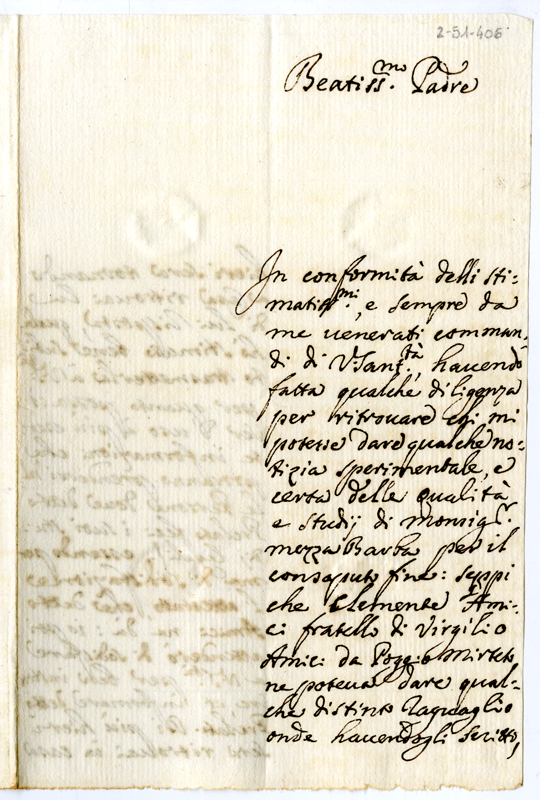 2-51-406
Beatiss.mo Padre
In conformità delli sti=
matiss.mi, e sempre da
me venerati comman,
di di V. Sant.tà, havendo
fatta qualche diligenza
per ritrouare chi mi
potesse dare qualche no=
tizia sperimentale, e
certa delle qualità,
e studij di Monsig.r
mezza Barba per il
consaputo fine: seppi
che Clemente Ami=
ci fratello di Virgilio
Amici da Poggio Mirteto
ne poteua dare qual=
che distinto raguaglio
onde havendogli scritto,